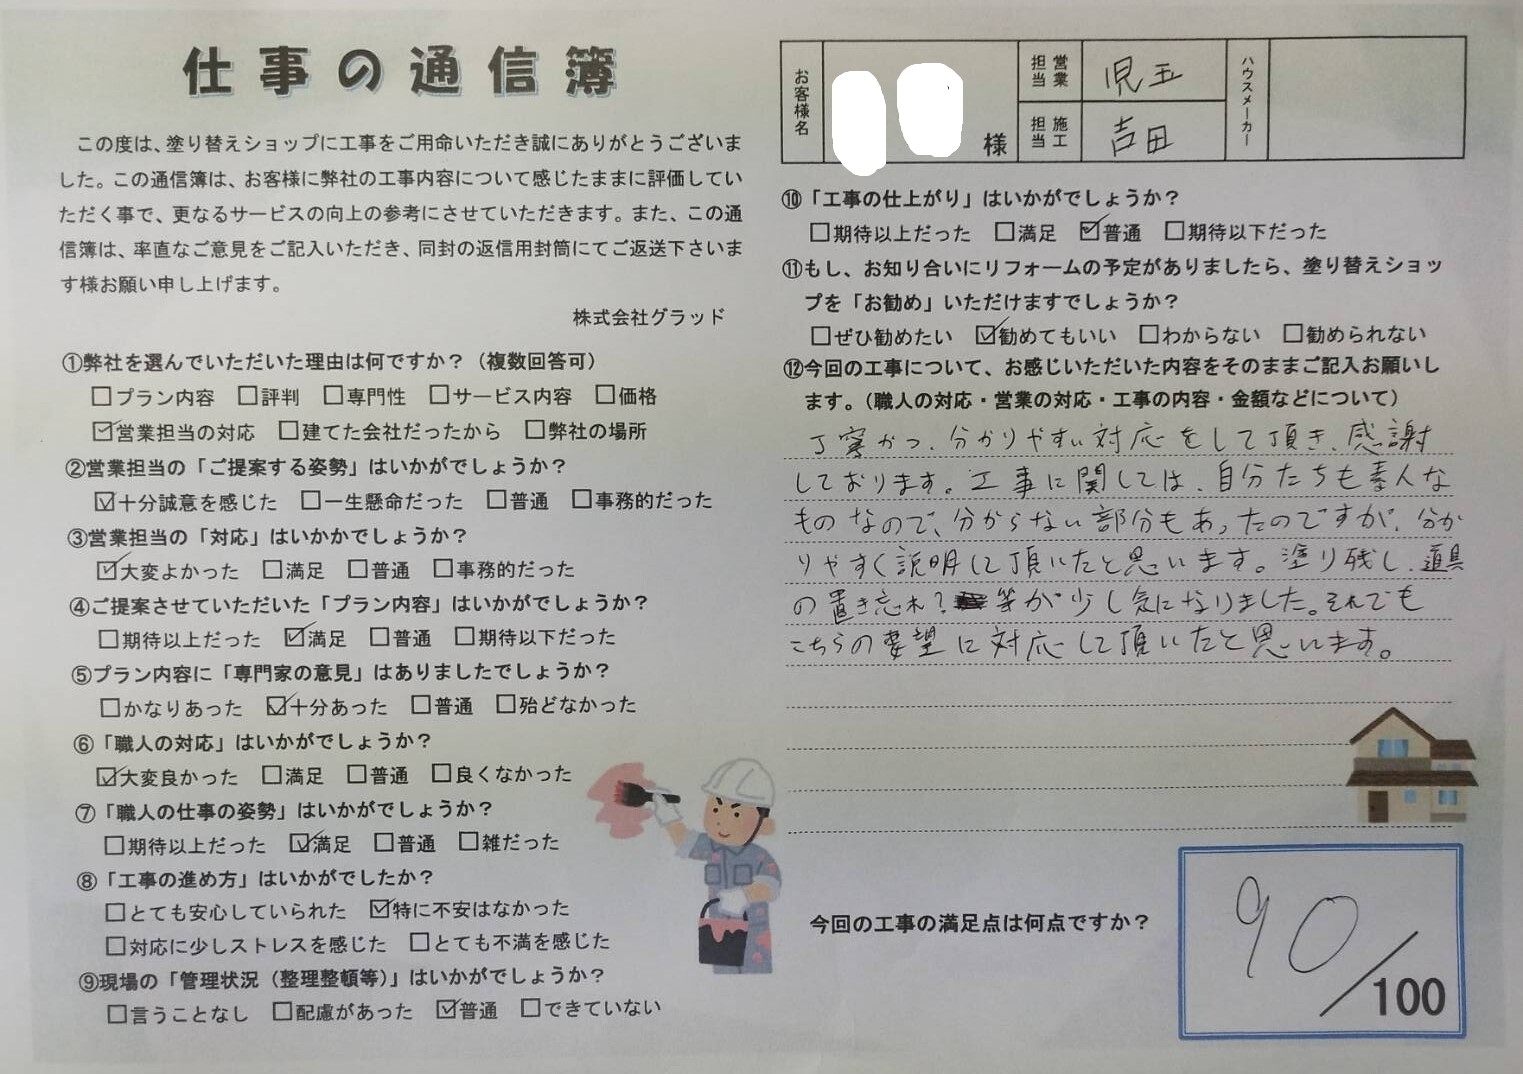 仕事の通信簿
この度は、塗り替えショップに工事をご用命いただき誠にありがとうございま
した。この通信簿は、お客様に弊社の工事内容について感じたままに評価してい
ただく事で、更なるサービスの向上の参考にさせていただきます。また、この通
信簿は、率直なご意見をご記入いただき、同封の返信用封筒にてご返送下さいま
す様お願い申し上げます。
株式会社グラッド
①弊社を選んでいただいた理由は何ですか?(複数回答可)
□プラン内容 □評判 □専門性 □サービス内容 □価格
☑営業担当の対応 □建てた会社だったから □弊社の場所
②営業担当の「ご提案する姿勢」はいかがでしょうか?
☑十分誠意を感じた □一生懸命だった □普通 □事務的だった
③営業担当の「対応」はいかかでしょうか?
☑大変よかった □満足 □普通 □事務的だった
④ご提案させていただいた「プラン内容」はいかがでしょうか?
□期待以上だった ☑満足 □普通 □期待以下だった
⑤プラン内容に「専門家の意見」はありましたでしょうか?
□かなりあった ☑十分あった □普通 □殆どなかった
⑥「職人の対応」はいかがでしょうか?
☑大変良かった □満足 □普通 □良くなかった
⑦「職人の仕事の姿勢」はいかがでしょうか?
□期待以上だった ☑満足 □普通 □雑だった
⑧「工事の進め方」はいかがでしたか?
□とても安心していられた ☑特に不安はなかった
□対応に少しストレスを感じた □とても不満を感じた
⑨現場の「管理状況(整理整頓等)」はいかがでしょうか?
□言うことなし □配慮があった ☑普通 □できていない
お客様名 様 営業担当 児玉 ハウスメーカー
施工担当 吉田
⑩「工事の仕上がり」はいかがでしょうか?
□期待以上だった □満足 ☑普通 □期待以下だった
⑪もし、お知り合いにリフォームの予定がありましたら、塗り替えショッ
プを「お勧め」いただけますでしょうか?
□ぜひ勧めたい ☑勧めてもいい □わからない □勧められない
⑫今回の工事について、お感じいただいた内容をそのままご記入お願いし
ます。(職人の対応・営業の対応・工事の内容・金額などについて)
丁寧かつ、分かりやすい対応をして頂き、感謝
しております。工事に関しては、自分たちも素人な
ものなので、分からない部分もあったのですが、分か
りやすく説明して頂いたと思います。塗り残し、道具
の置き忘れ?等が少し気になりました。それでも
こちらの要望に対応して頂いたと思います。
今回の工事の満足点は何点ですか?
90/100